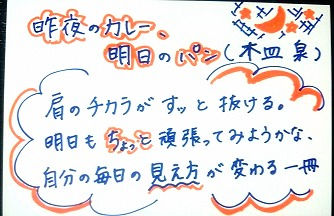 昨夜のカレー、
明日のパン(木皿 泉)
肩のチカラがスッと抜ける。
明日もちょっと頑張ってみようかな、
自分の毎日の見え方が変わる一冊